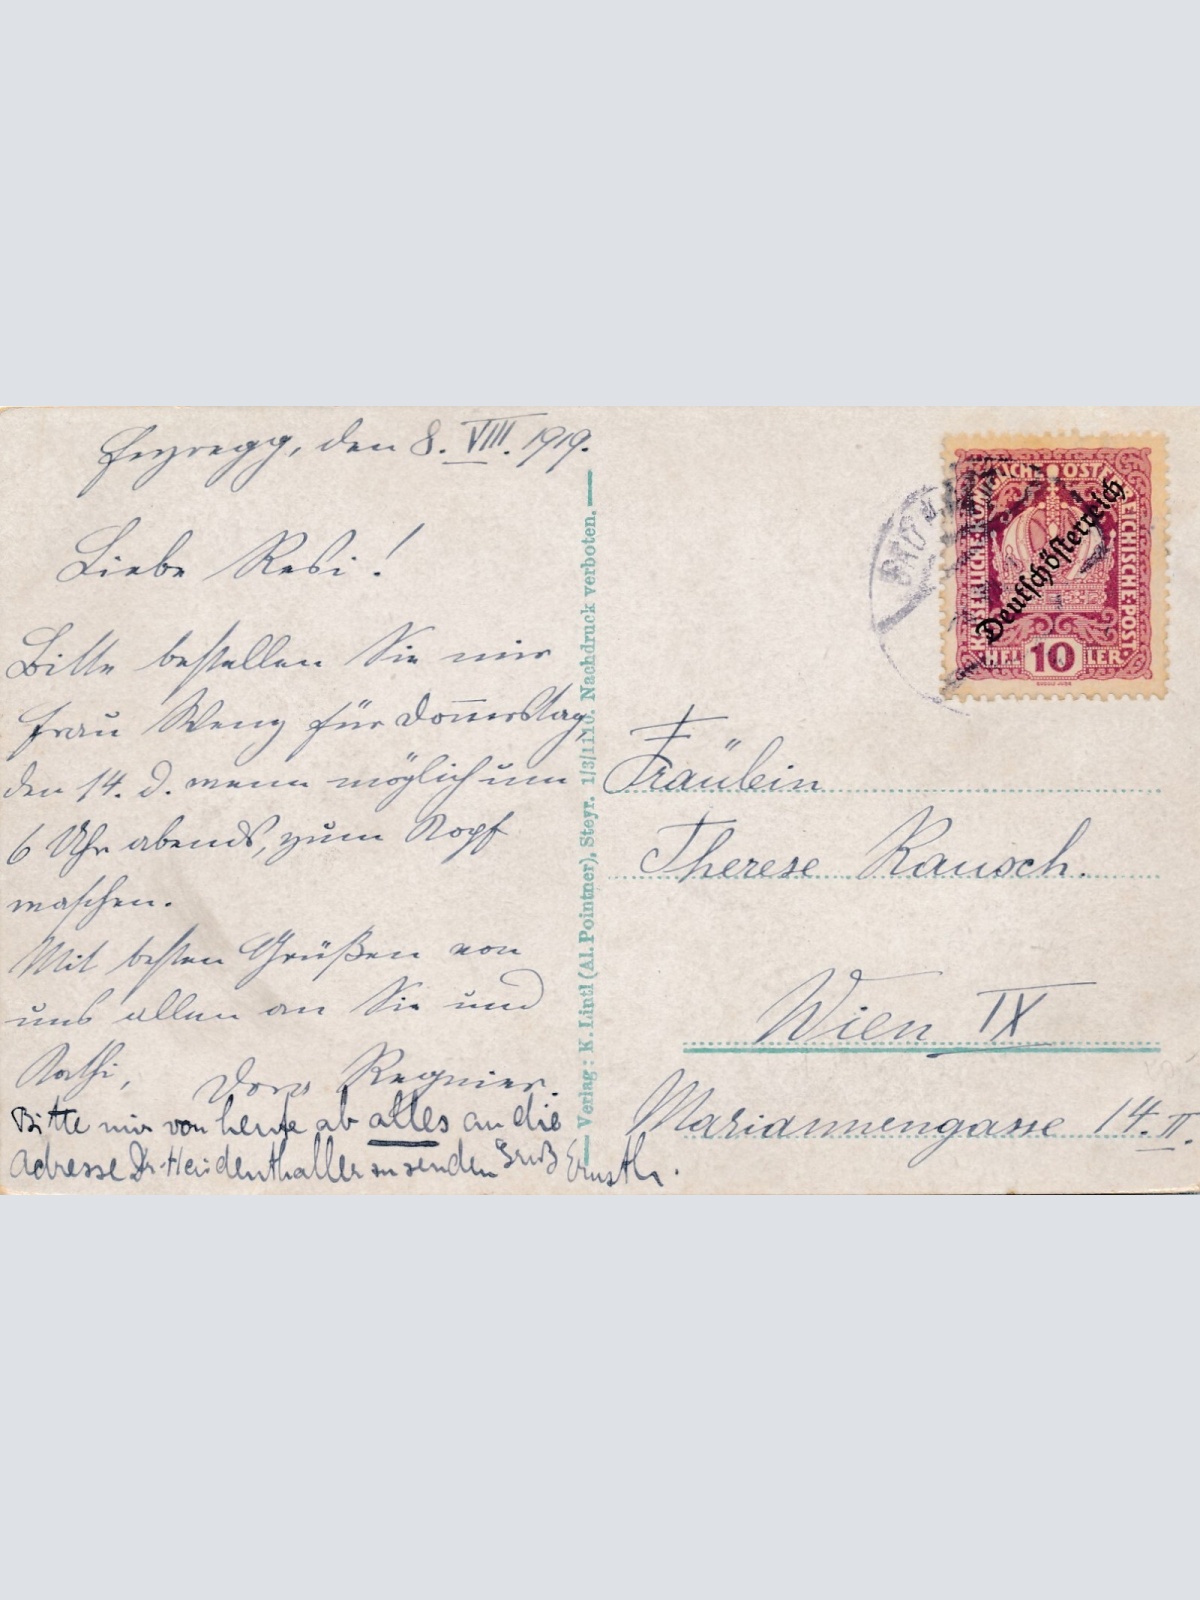 Feyregg, den 8. VIII. 1919.
Liebe Resi!
Bitte bestellen Sie mir
Frau Weng für Donnerstag,
den 14. d. wenn möglich um
6 Uhr abends, zum Kopf
waschen.
Mit besten Grüßen von
uns allen an Sie und
Kathi, Dora Regnier.
Bitte mir von heute ab alles an die
Adresse Dr. Heidenthaller zu senden Gruß
Verlag: K. Lintl (Al. Pointner), Steyr. 1/3/1110. Nachdruck verboten.
KAISERLICHE KÖNIGLICHE ÖSTERREICHISCHE POST
Deutschösterreich
10
HELLER
BAD
Fräulein
Therese Rausch.
Wien IX
Mariannengasse 14. II.